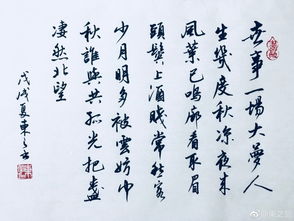 世事一場大夢人
生幾度秋涼夜來
風葉已鳴廊看取眉
頭鬢上酒賤常愁客
少月明多被雲妨中
秋誰與共孤光把盞
淒然北望
戊戌夏東之書